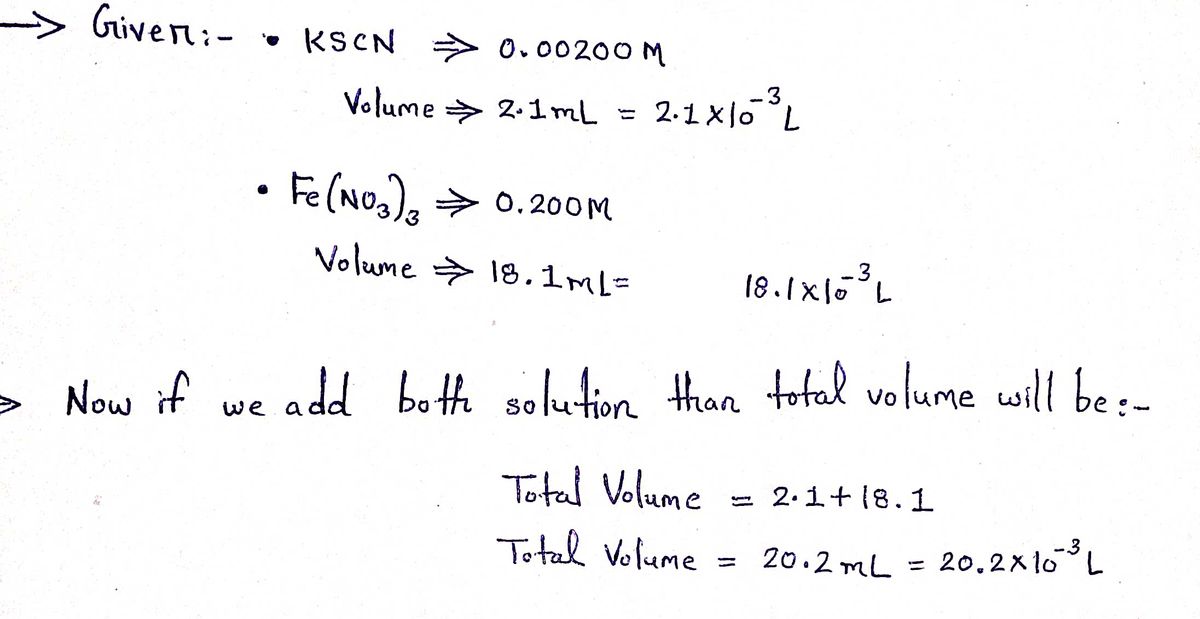 → Given:- • KSCN ⇒ 0.00200 M
Volume ⇒ 2.1 mL = 2.1 x 10⁻³ L
• Fe(NO₃)₃ ⇒ 0.200 M
Volume ⇒ 18.1 mL = 18.1 x 10⁻³ L
> Now if we add both solution than total volume will be :-
Total Volume = 2.1 + 18.1
Total Volume = 20.2 mL = 20.2 x 10⁻³ L